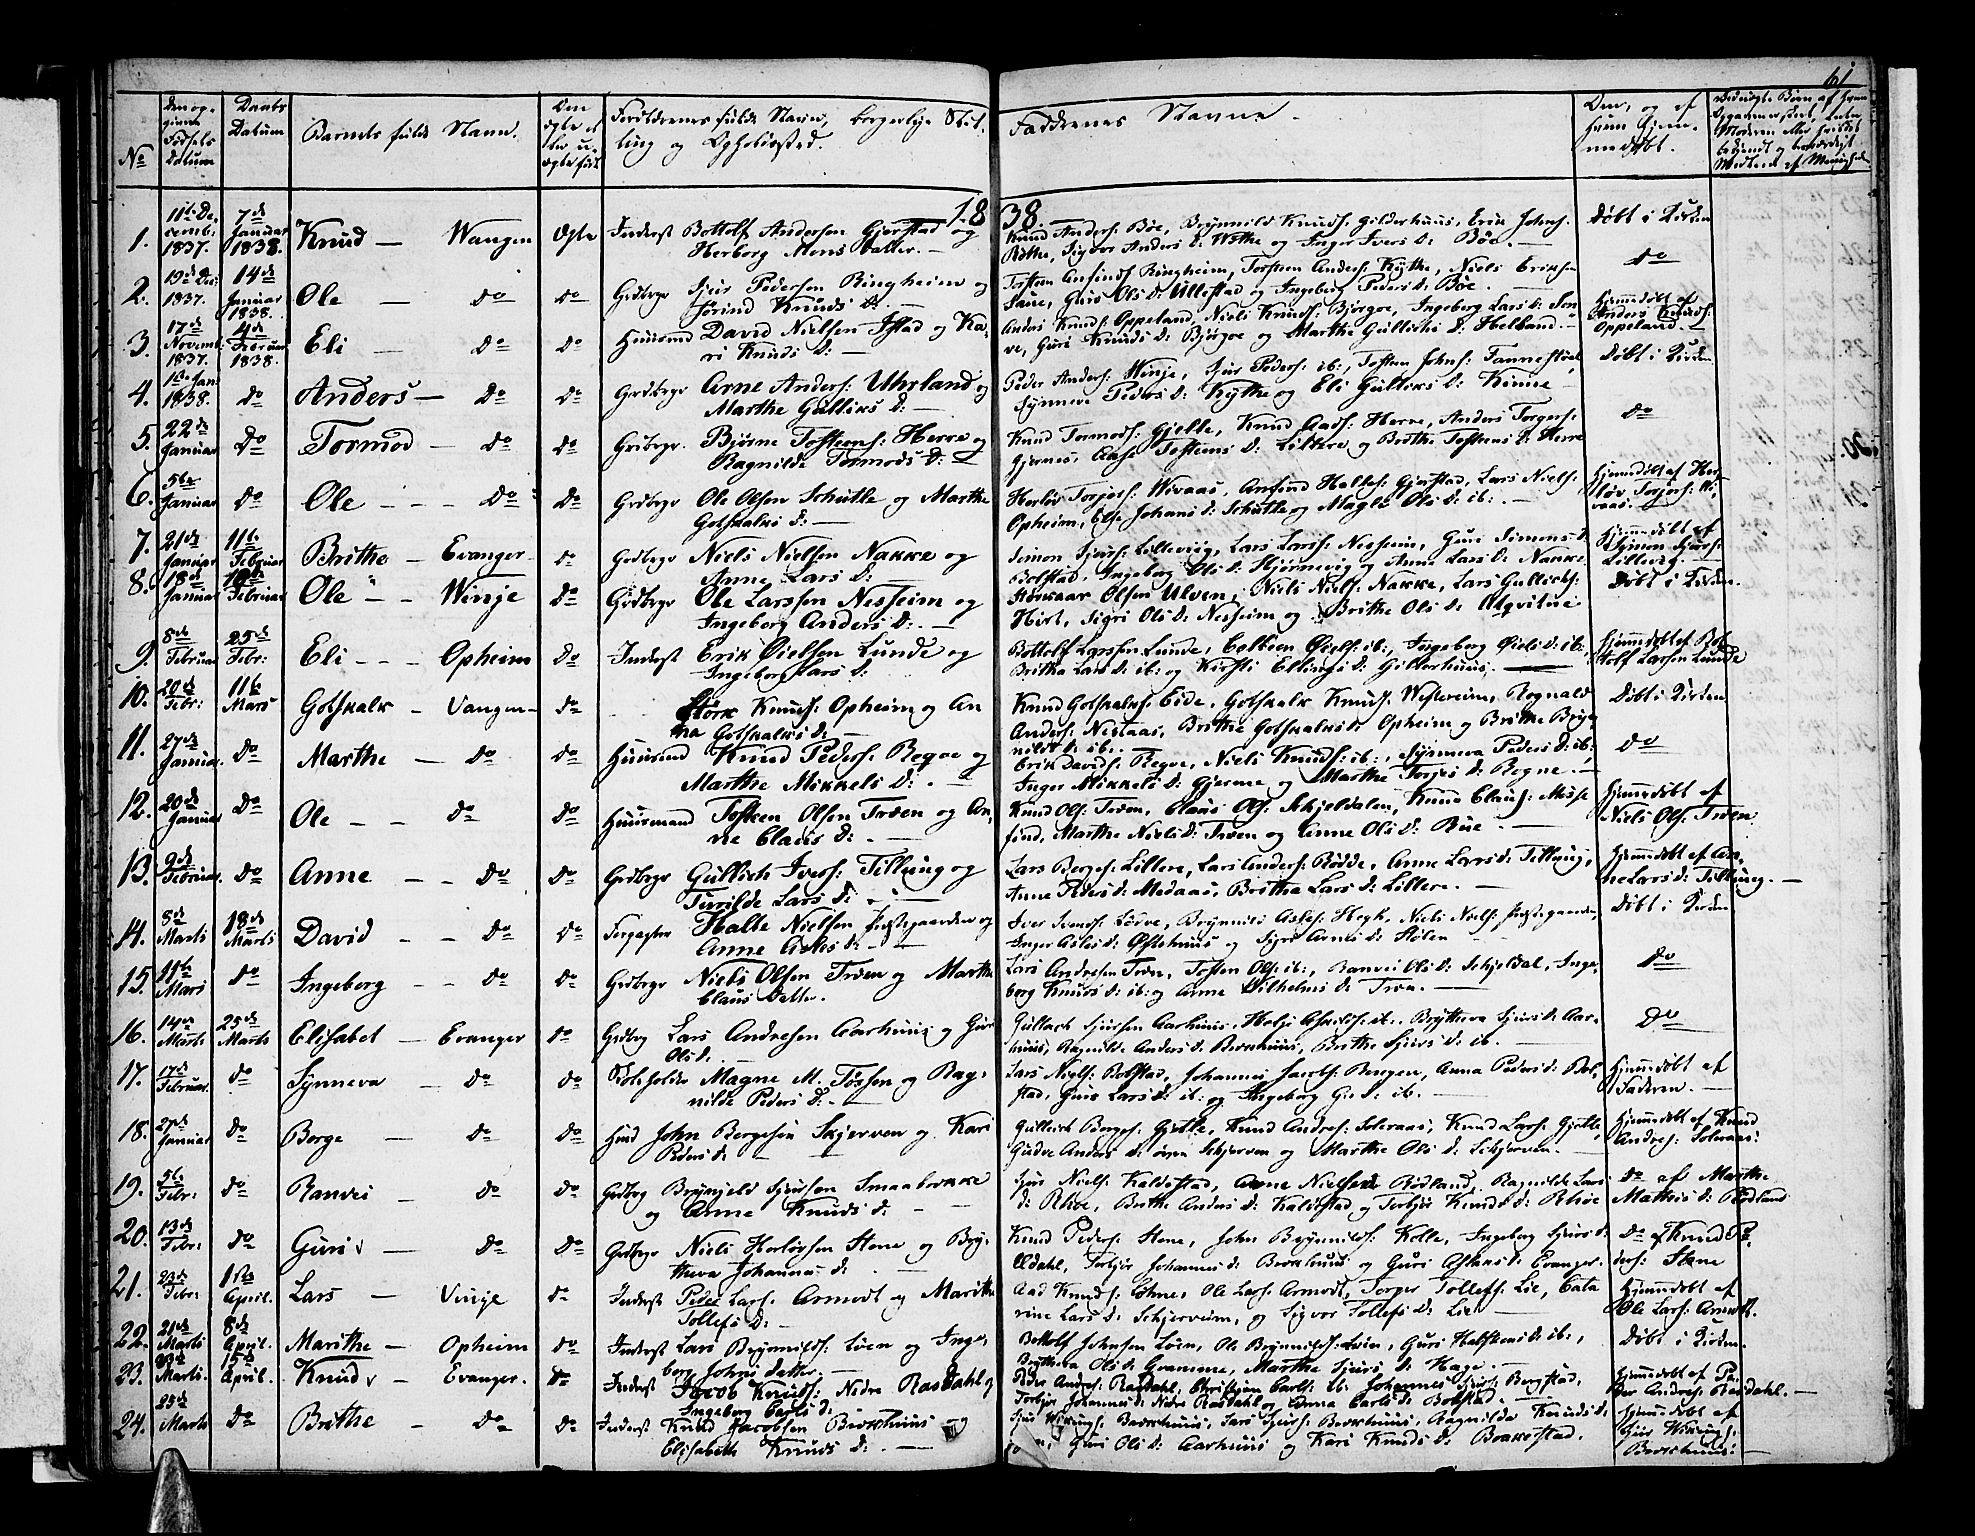 61
No
Den op-
givne
Fødsels
Datum
Daabs
Datum
Barnets fulde Navn.
Den
ægte el
ler u-
ægte fød
Forældrenes fulde Navne, borgerlige Stil-
ling og Opholdssted.
Faddrenes Navne.
Den, og af
hvem hjem-
medøbt.
1838.
1. 11te De-
cemb:
1837. 7de
Januar
1838. Knud — Wangen Ægte Inderst Bottolf Andersen Gjerstad og
Herborg Mons datter. —
Knud Anders: Böe, Brynnild Knuds: Gilderhuus, Erik Johns:
Röthe, Sigvor Anders D: Wethe og Inger Ivers D: Böe. —
Døbt i Kirken
2. 19de De:
1837. 14de
Januar
1838. Ole — do do Grdbrgr Sjur Pedersen Ringheim og
Jörind Knuds D: —
Torsteen Anfinds: Ringheim, Torsteen Anders: Kÿthe, Niels Eriks:
Saue, Guri Ols D: Ullestad og Ingeborg Peders D: Böe. —
do
3. 17de
Novemb:
1837. 4de
Februar
1838. Eli — do do Huusmd David Nielsen Istad og Ka-
ri Knuds D: —
Anders Knuds: Oppeland, Niels Knuds: Björgoe, Ingeborg Lars D: Son
ve, Guri Knuds D: Björgoe og Marthe Gulliks D: Helland. —
Hjemmedøbt af
Anders Knuds:
Oppeland. —
4. Jan:
1838. do Anders — do do Grdbrgr Arne Anders: Uhrland og
Marthe Gulliks D: —
Peder Anders: Winje, Sjur Peders: ib:, Tosteen Johns: Fannestöel,
Sÿnneve Peders D: Kÿthe og Eli Gulliks D: Kinne —
Døbt i Kirken
5. 22de
Januar do Tormod — do do Grdbrgr Björne Tosteens: Herre og
Ragnilde Tormods D: —
Knud Tormods: Gjelle, Knud Aads: Herre, Anders Torgers:
Gjernes, Aase Tosteens D: Lillere og Brithe Tosteens D: Herre
do
6. 5te
Januar do Ole - - - do do Grdbrgr Ole Olsen Schutle og Marthe
Gotskalks D: —
Herlov Torjers: Wivaas, Anfind Halles: Gjerstad, Lars Niels:
Opheim, Else Johans D: Schutle og Magle Ols D: ib: —
Hjemmedøbt af Her-
löv Torjers: Wi-
vaas.
7. 21de
Januar 11te
Februar Brithe — Evanger do Grdbrgr Niels Nielsen Nakke og
Anne Lars D:
Simon Sjurs: Lillevig, Lars Lars: Nesheim, Guri Simons D:
Bolstad, Ingeborg Ols D: Hjörnevig og Anne Lars D: Nakke
Hjemmedøbt af
Simon Sjurs:
Lillevig. —
8. 18de
Januar 18de
Februar Ole - - Winje do Grdbrgr Ole Larssen Nesheim og
Ingeborg Anders D: —
Störkaar Olsen Ulven, Niels Niels: Nakke, Lars Gulliks:
Hirt, Sigri Ols D: Nesheim og Brithe Ols D: Uqvitne
Døbt i Kirken.
9. 8de
Februar 25de
Febr: Eli - - - Opheim do Inderst Erik Öielsen Lunde og
Ingeborg Lars D:
Bottolf Larssen Lunde, Colbein Öiels: ib:, Ingeborg Öiels D: ib:,
Britha Lars D: ib: og Kirsti Ellings D: Gilderhuus. —
Hjemmedøbt af Bot-
tolf Larsen Lunde
10. 20de
Febr: 11te
Mars Gotskalk — Vangen — do Störk Knuds: Opheim og An
na Gotskalks D: —
Knud Gotskalks: Eide, Gotskalk Knuds: Westereim, Rognald
Anders: Nestaas, Brithe Gotskalks D: Opheim og Brithe Bryn-
nilds D: ib: —
Døbt i Kirken
11. 27de
Januar do Marthe — do do Huusmd Knud Peders: Reqve og
Marthe Mikkels D: —
Erik Davids: Reqve, Niels Knuds: ib:, Synneva Peders D: ib:
Inger Mikkels D: Gjerme og Marthe Torjes D: Reqve. —
do
12. 20de
Januar do Ole - - do do Huusmand Tosteen Olsen Træen og An-
ne Claus D: —
Knud Ols: Træen, Claus Ols: Schjeldalen, Knud Claus: Misse
find, Marthe Niels D: Træen og Anne Ols D: Rue. —
Hjemmedøbt af
Niels Ols: Træen.
13. 9de
Februar. do Anne - - do do Grdbrgr Gullich Ivers: Tillung og
Turilde Lars D: —
Lars Berges: Lillere, Lars Anders: Rödde, Anne Lars D: Tillung,
Anne Peders D: Medaas, Brithe Lars D: Lillere. —
Hjemmedøbt af An-
ne Lars D: Tillung. —
14. 8de
Marts 18de
Marts David - - do do Halle Nielsen Præstegaarden og
Anne Asles D: —
Iver Ivers: Lödve, Brynnild Asles: Hegk, Niels Niels: Præstegaarden,
Inger Asles D: og Sigri Arnes D: Stölen —
Døbt i Kirken
15. 11te
Mars do Ingeborg - - do do Grdbrgr Niels Olsen Træen og Marthe
Claus datter.
Lars Andresen Træn, Tosten Ols: ib:, Ranvei Ols D: Schjeldal, Inge-
borg Knuds D: ib: og Anne Wilhelms D: Træn. —
do
16. 14de
Marts 25de
Marts Elisabet — Evanger do Grdbrg Lars Andresen Aarhuus og Guri
Ols D. —
Gullach Sjursen Aarhuus, Helje Askilds: ib:, Brÿtheva Sjurs D: Aar-
huus, Ragnilde Anders D: Berkhuus, Brithe Sjurs D: ib. —
do
17. 17de
Februar. do Synneva — do do Magne M. Tössen og Rag-
nilde Peders D: —
Lars Niels: Bolstad, Johannes Jacobs: Bergen, Anna Peders D: Bol-
stad, Guri Lars D: ib: og Ingeborg D: ib. —
Hjemmedøbt af
Faderen. —
18. 27de
Januar do Borge — do do Hmd John Bergesen Skjerven og Kari
Peders D: —
Gullich Berges: Gjelle, Knud Andres: Solraas, Knud Lars: Gjelle,
Gudve Anders D: övre Schjerven og Marthe Ols D: Schjerven. —
Hjemmedøbt af Knud
Andres: Solraas:
19. 5te
Febr: do Ranvei — do do Grdbrg Brynjeld Sjursen Smaabrække
og Anne Knuds D: —
Sjur Niels: Kaldestad, Arne Nielsen Rödland, Ragnilde Lars
D: Rhöe, Brithe Anders D: Kaldestad og Torbjör Knuds D: Rhöe
do af Marthe
Mathis D: Rödland
20. 13de
Febr: do Guri — do do Grdbrgr Niels Herlögsen Stene og Bry-
theva Johannes D: —
Knud Peders: Stene, John Brynnilds: Kolle, Ingeborg Sjurs D:
Ældahl, Torbjör Johannes D: Berkhuus og Guri D: Evanger.
do af Knud Pe-
ders: Stene
21. 23de
Febr: 1ste
April. Lars — Vinje do Inderst Peder Lars: Armodt og Marithe
Tollefs D: —
Aad Knuds: Löhne, Ole Lars: Armodt, Torger Tollefs: Lie, Cata
rine Lars D: Schjerveim, og Sigvor Tollefs D: Lie —
Hjemmedøbt af
Ole Lars: Armodt.
22. 21de
Marts 8de
April. Marithe — Opheim do Inderst Lars Brynnilds: Löen og Inge-
borg Johns datter. —
Bottolf Johnsen Löen, Ole Brynnilds: Löen, Guri Halstens D: ib:,
Brytheva Ols D: Gvamme, Marthe Sjurs D: Hage. —
Døbt i Kirken.
23. Marts. 15de
April. Knud — Evanger. do Inderst Jacob Knuds: Nedre Rasdahl og
Ingeborg Carls D:
Peder Andres: Rasdahl, Christian Carls: ib: Johannes Sjurs: Bergstad,
Torbjör Johannes D: Nedre Rasdahl og Anna Carls D: Bolstad. —
Hjemmedøbt af Pe-
der Andres: Rasdahl. —
24. 25de
Marts do Brithe — do do Inderst Knud Jacobsen Berkhuus og
Elisabeth Knuds D: —
Sjur Wikings: Berkhuus, Lars Sjurs: Berkhuus, Ragnilde Knuds D:
Guri Ols D: Aarhuus og Kari Knuds D: Brakestad.
Hjemmedøbt af
Sjur Wikings:
Berkhuus: —